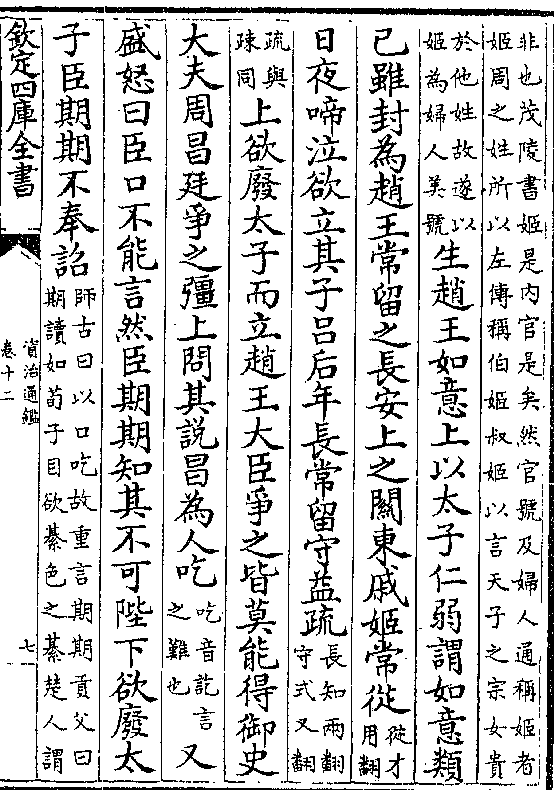 非也茂陵書姬是内官是矣然官號及婦人通稱姬者
姬周之姓所以左傳稱伯姬叔姬以言天子之宗女貴
於他姓故遂以
姬為婦人美號
生趙王如意上以太子仁弱謂如意類
已雖封為趙王常留之長安上之關東戚姬常從
從才
用翻
日夜啼泣欲立其子吕后年長常留守益疏
長知兩翻
守式又翻
疏與
疎同
上欲廢太子而立趙王大臣爭之皆莫能得御史
大夫周昌廷爭之彊上問其説昌為人吃
吃音訖言
之難也
又
盛怒曰臣口不能言然臣期期知其不可陛下欲廢太
子臣期期不奉詔
師古曰以口吃故重言期期貢父曰
期讀如荀子目欲綦色之綦楚人謂
欽定四庫全書
資治通鑑
卷十二
七